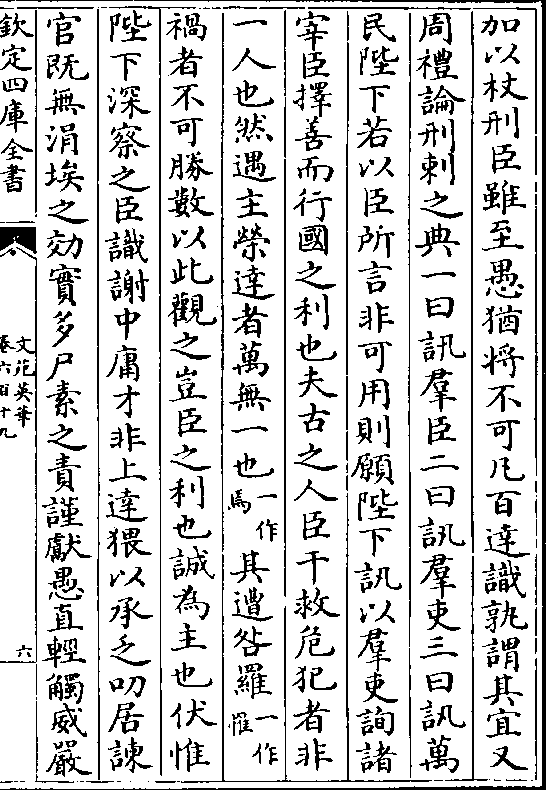 加以杖刑臣雖至愚猶將不可凡百達識孰謂其宜又
周禮論刑刺之典一曰訊羣臣二曰訊羣吏三曰訊萬
民陛下若以臣所言非可用則願陛下訊以羣吏詢諸
宰臣擇善而行國之利也夫古之人臣干救危犯者非
一人也然遇主榮達者萬無一也一作焉其遭咎羅一作罹
禍者不可勝數以此觀之豈臣之利也誠為主也伏惟
陛下深察之臣識謝中庸才非上達猥以承乏叨居諫
官既無涓埃之効實多尸素之責謹獻愚直輕觸威嚴
欽定四庫全書
文苑英華
卷六百十九
六